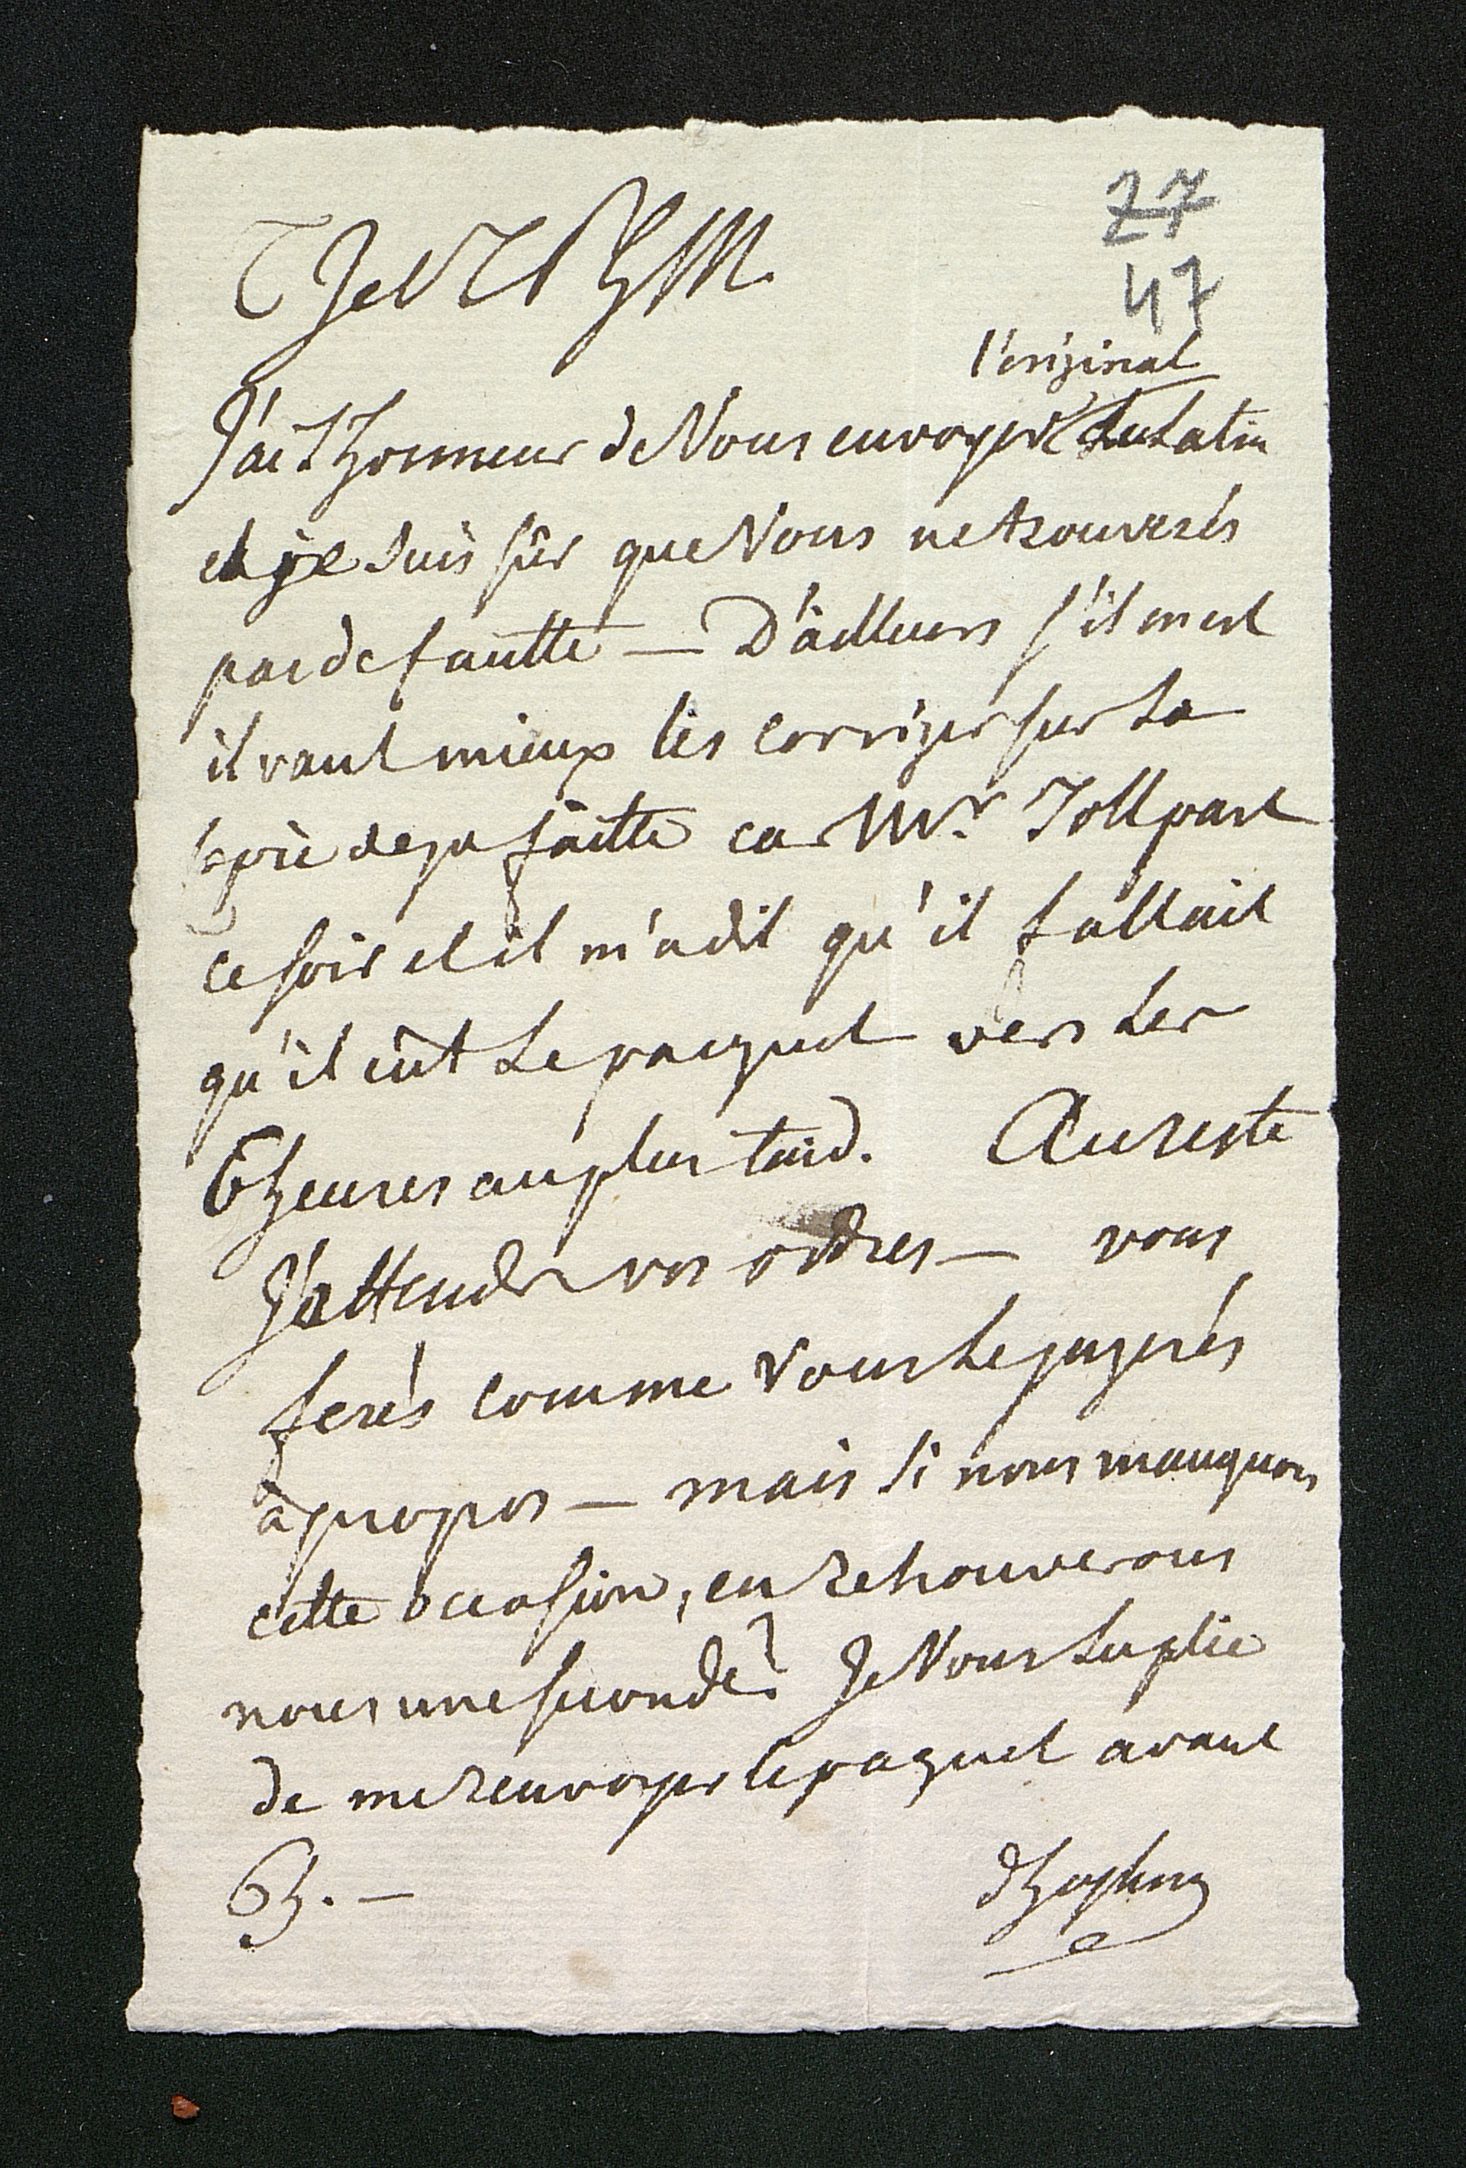 27
47
T J et V T R h M.
l'original
J'ai l'honneur de Vous envoyer du Latin
et je suis sûr que Vous ne trouverés
pas de fautte — D'ailleurs s'il en est
il vaut mieux les corriger sur La
copie deja faitte car Mr. Toll part
ce soir et il m'a dit qu'il fallait
qu'il eût Le pacquet vers Les
6 heures au plus tard. Au reste
J'attends vos ordres — vous
ferés comme Vous Le jugerés
à propos — mais si nous manquons
cette occasion, en retrouverons
nous une seconde? Je Vous suplie
de me renvoyer le paquet avant
6 h. —